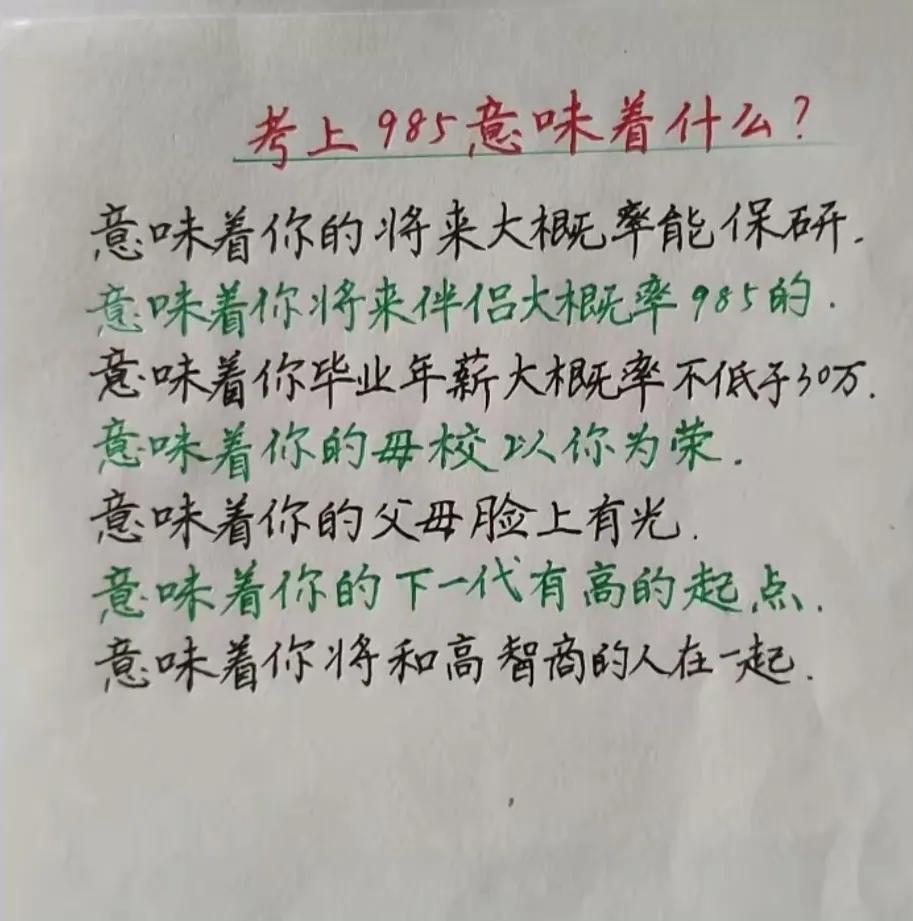 考上985意味着什么?
意味着你的将来大概率能保研.
意味着你将来伴侣大概率985的.
意味着你毕业年薪大概率不低于30万.
意味着你的母校以你为荣.
意味着你的父母脸上有光.
意味着你的下一代有高的起点.
意味着你将和高智商的人在一起.